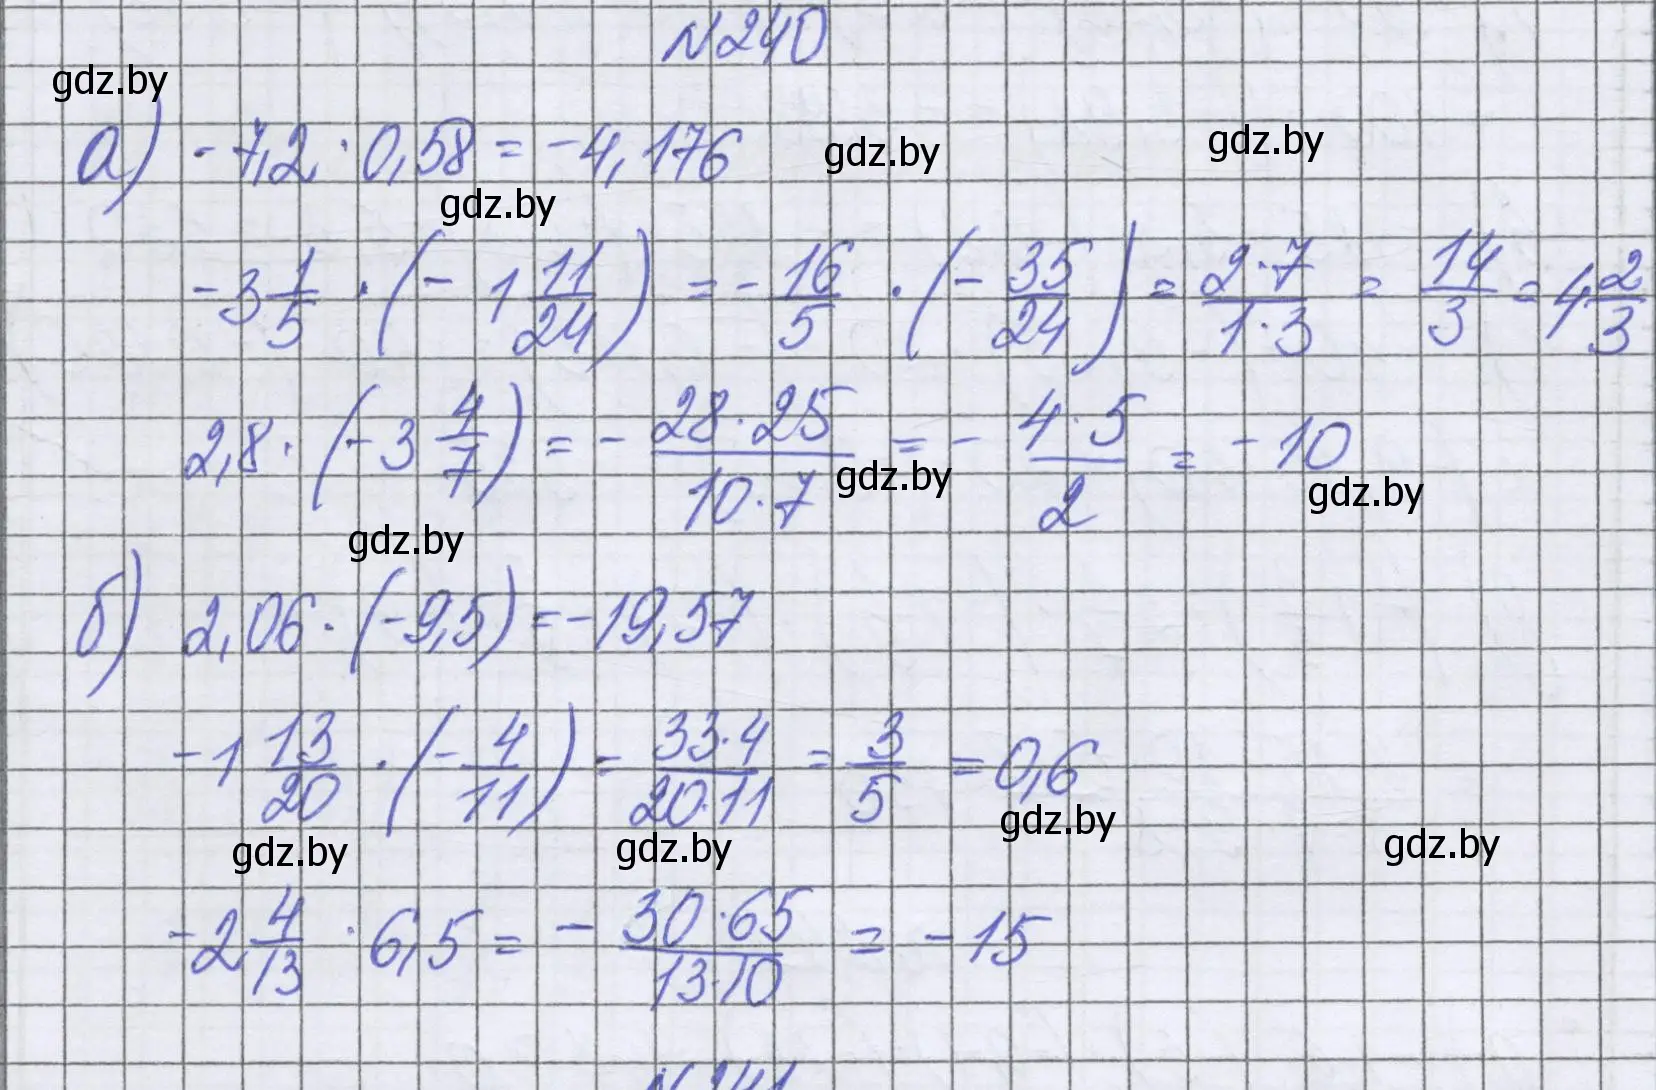 N240
gdz.by
а) -7,2 · 0,58 = -4,176 gdz.by gdz.by
gdz.by
-3 1/5 · (-1 11/24) = -16/5 · (-35/24) = 2·7/1·3 = 14/3 = 4 2/3
2,8 · (-3 4/7) = - 28·25/10·7 = - 4·5/2 = -10
gdz.by gdz.by
gdz.by
б) 2,06 · (-9,5) = -19,57
-1 13/20 · (-4/11) = 33·4/20·11 = 3/5 = 0,6
gdz.by gdz.by gdz.by gdz.by
-2 4/13 · 6,5 = - 30·65/13·10 = -15
N241